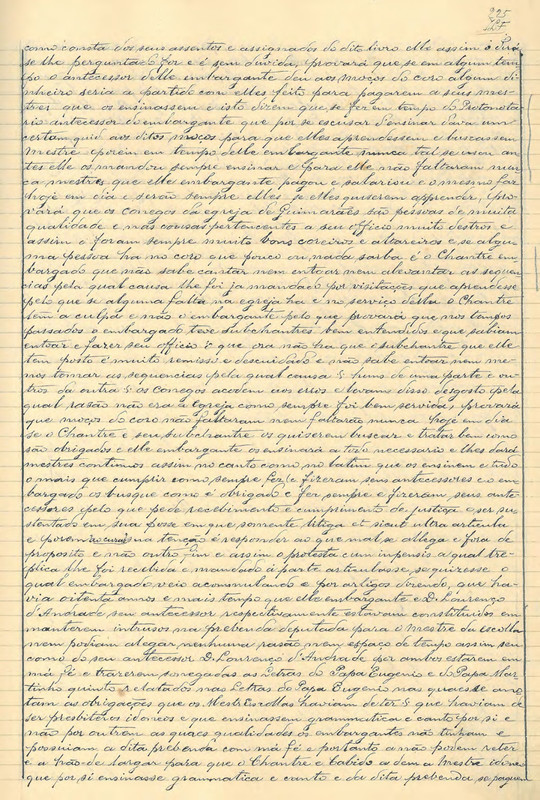 225
como consta dos seus assentos e assignados do dito livro elle assim o
se lhe perguntado for e é sem duvida, provará que se em algum tem-
po o antecessor delle embargante deu aos moços do coro algum di-
nheiro seria a partido com elles feito para pagarem a seus mes-
tres que os ensinassem e isto dizem que se fez em tempo do Protonota-
rio antecessor do embargante que por se escusar d'ensinar dava um
certum quid aos ditos moços para que elles aprendessem e buscassem
mestre e porem em tempo delle embargante nunca tal se usou an-
tes elle os mandou sempre ensinar e para elle não faltaram nun-
ca mestres que elle embargante pagou e salariou e o mesmo faz
hoje em dia e serão sempre elles se elles quiserem apprender, pro-
vará que os conegos da egreja de Guimarães são pessoas de muita
qualidade e nas cousas pertencentes a seu officio muito destros e
assim o foram sempre muito bons coreiros e altareiros e se algu-
ma pessoa ha no coro que pouco ou nada saiba é o Chantre em-
bargado que não sabe cantar nem entoar nem alevantar as sequen-
cias pela qual causa lhe foi ja mandado por visitações que aprendesse
pelo que se alguma falta na egreja ha e no serviço della o Chantre
tem a culpa e não o embargante pelo que provará que nos tempos
passados o embargado teve subchantres bem entendidos e que sabiam
entoar e fazer seu officio e que ora não ha que o subchantre que elle
tem posto é muito remisso e descuidado e não sabe entoar nem me-
nos tomar as sequencias pela qual causa hums de uma parte e ou-
tros da outra os conegos acodem aos erros e levam disso desgosto pela
qual rasão não era a egreja como sempre foi bem servida, provará
que moços do coro não faltaram nem faltarão nunca hoje em dia
se o Chantre e seu subchantre os quiserem buscar e tratar bem como
são obrigados e elle embargante os ensinará a todo necessario e lhes dará
mestres continuos assim no canto como no latim que os ensinem e tudo
o mais que cumprir como sempre fez e fizeram seus antecessores e o em-
bargado os busque como é obrigado e fez sempre e fizeram seus ante-
cessores pelo que pede recebimento e cumprimento de justiça e ser su-
stentado em sua posse em que somente litiga et sicut ultra articula
e porem sua tenção é responder ao que mal se allega e fora de
proposito e não outro fim e assim o protesta cum inpensis a qual tre-
plica lhe foi recebida e mandado á parte articulasse se quizesse o
qual embargado veio accumulando e por artigos dizendo, que ha-
via oitenta annos e mais tempo que elle embargante e D. Lourenço
d'Andrade seu antecessor respectivamente estavam constituidos em
manterem intrusos na prebenda deputada para o mestre da escolla
nem podiam alegar nenhuma rasão nem espaço de tempo assim seu
como do seu antecessor D. Lourenço d'Andrade por ambos estarem em
má fé e trazerem sonegadas as Letras do Papa Eugenio e do Papa Mar-
tinho quinto relatados nas Letras do Papa Eugenio nas quaes se ano-
tam as obrigações que os Mestrescollas haviam de ter que haviam de
ser presbiteros idoneos e que ensinassem grammatica e canto por si e
não por outrem as quaes qualidades os embargantes não tinham e
possuiam a dita prebenda com má fé e portanto a não podem reter
e a hão de largar para que o Chantre e Cabido a dem a mestre idoneo
que por si ensinasse grammatica e canto e da dita prebenda se pague